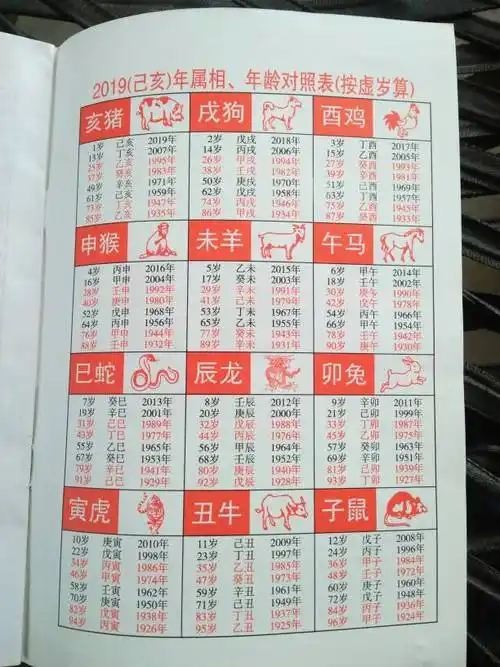 2019(己亥)年属相、年龄对照表(按虚岁算)
亥猪
1岁 己亥 2019年
13岁 丁亥 2007年
25岁 乙亥 1995年
37岁 癸亥 1983年
49岁 辛亥 1971年
61岁 己亥 1959年
73岁 丁亥 1947年
85岁 乙亥 1935年
戌狗
2岁 戊戌 2018年
14岁 丙戌 2006年
26岁 甲戌 1994年
38岁 壬戌 1982年
50岁 庚戌 1970年
62岁 戊戌 1958年
74岁 丙戌 1946年
86岁 甲戌 1934年
酉鸡
3岁 丁酉 2017年
15岁 乙酉 2005年
27岁 癸酉 1993年
39岁 辛酉 1981年
51岁 己酉 1969年
63岁 丁酉 1957年
75岁 乙酉 1945年
87岁 癸酉 1933年
申猴
4岁 丙申 2016年
16岁 甲申 2004年
28岁 壬申 1992年
40岁 庚申 1980年
52岁 戊申 1968年
64岁 丙申 1956年
76岁 甲申 1944年
88岁 壬申 1932年
未羊
5岁 乙未 2015年
17岁 癸未 2003年
29岁 辛未 1991年
41岁 己未 1979年
53岁 丁未 1967年
65岁 乙未 1955年
77岁 癸未 1943年
89岁 辛未 1931年
午马
6岁 甲午 2014年
18岁 壬午 2002年
30岁 庚午 1990年
42岁 戊午 1978年
54岁 丙午 1966年
66岁 甲午 1954年
78岁 壬午 1942年
90岁 庚午 1930年
巳蛇
7岁 癸巳 2013年
19岁 辛巳 2001年
31岁 己巳 1989年
43岁 丁巳 1977年
55岁 乙巳 1965年
67岁 癸巳 1953年
79岁 辛巳 1941年
91岁 己巳 1929年
辰龙
8岁 壬辰 2012年
20岁 庚辰 2000年
32岁 戊辰 1988年
44岁 丙辰 1976年
56岁 甲辰 1964年
68岁 壬辰 1952年
80岁 庚辰 1940年
92岁 戊辰 1928年
卯兔
9岁 辛卯 2011年
21岁 己卯 1999年
33岁 丁卯 1987年
45岁 乙卯 1975年
57岁 癸卯 1963年
69岁 辛卯 1951年
81岁 己卯 1939年
93岁 丁卯 1927年
寅虎
10岁 庚寅 2010年
22岁 戊寅 1998年
34岁 丙寅 1986年
46岁 甲寅 1974年
58岁 壬寅 1962年
70岁 庚寅 1950年
82岁 戊寅 1938年
94岁 丙寅 1926年
丑牛
11岁 己丑 2009年
23岁 丁丑 1997年
35岁 乙丑 1985年
47岁 癸丑 1973年
59岁 辛丑 1961年
71岁 己丑 1949年
83岁 丁丑 1937年
95岁 乙丑 1925年
子鼠
12岁 戊子 2008年
24岁 丙子 1996年
36岁 甲子 1984年
48岁 壬子 1972年
60岁 庚子 1960年
72岁 戊子 1948年
84岁 丙子 1936年
96岁 甲子 1924年